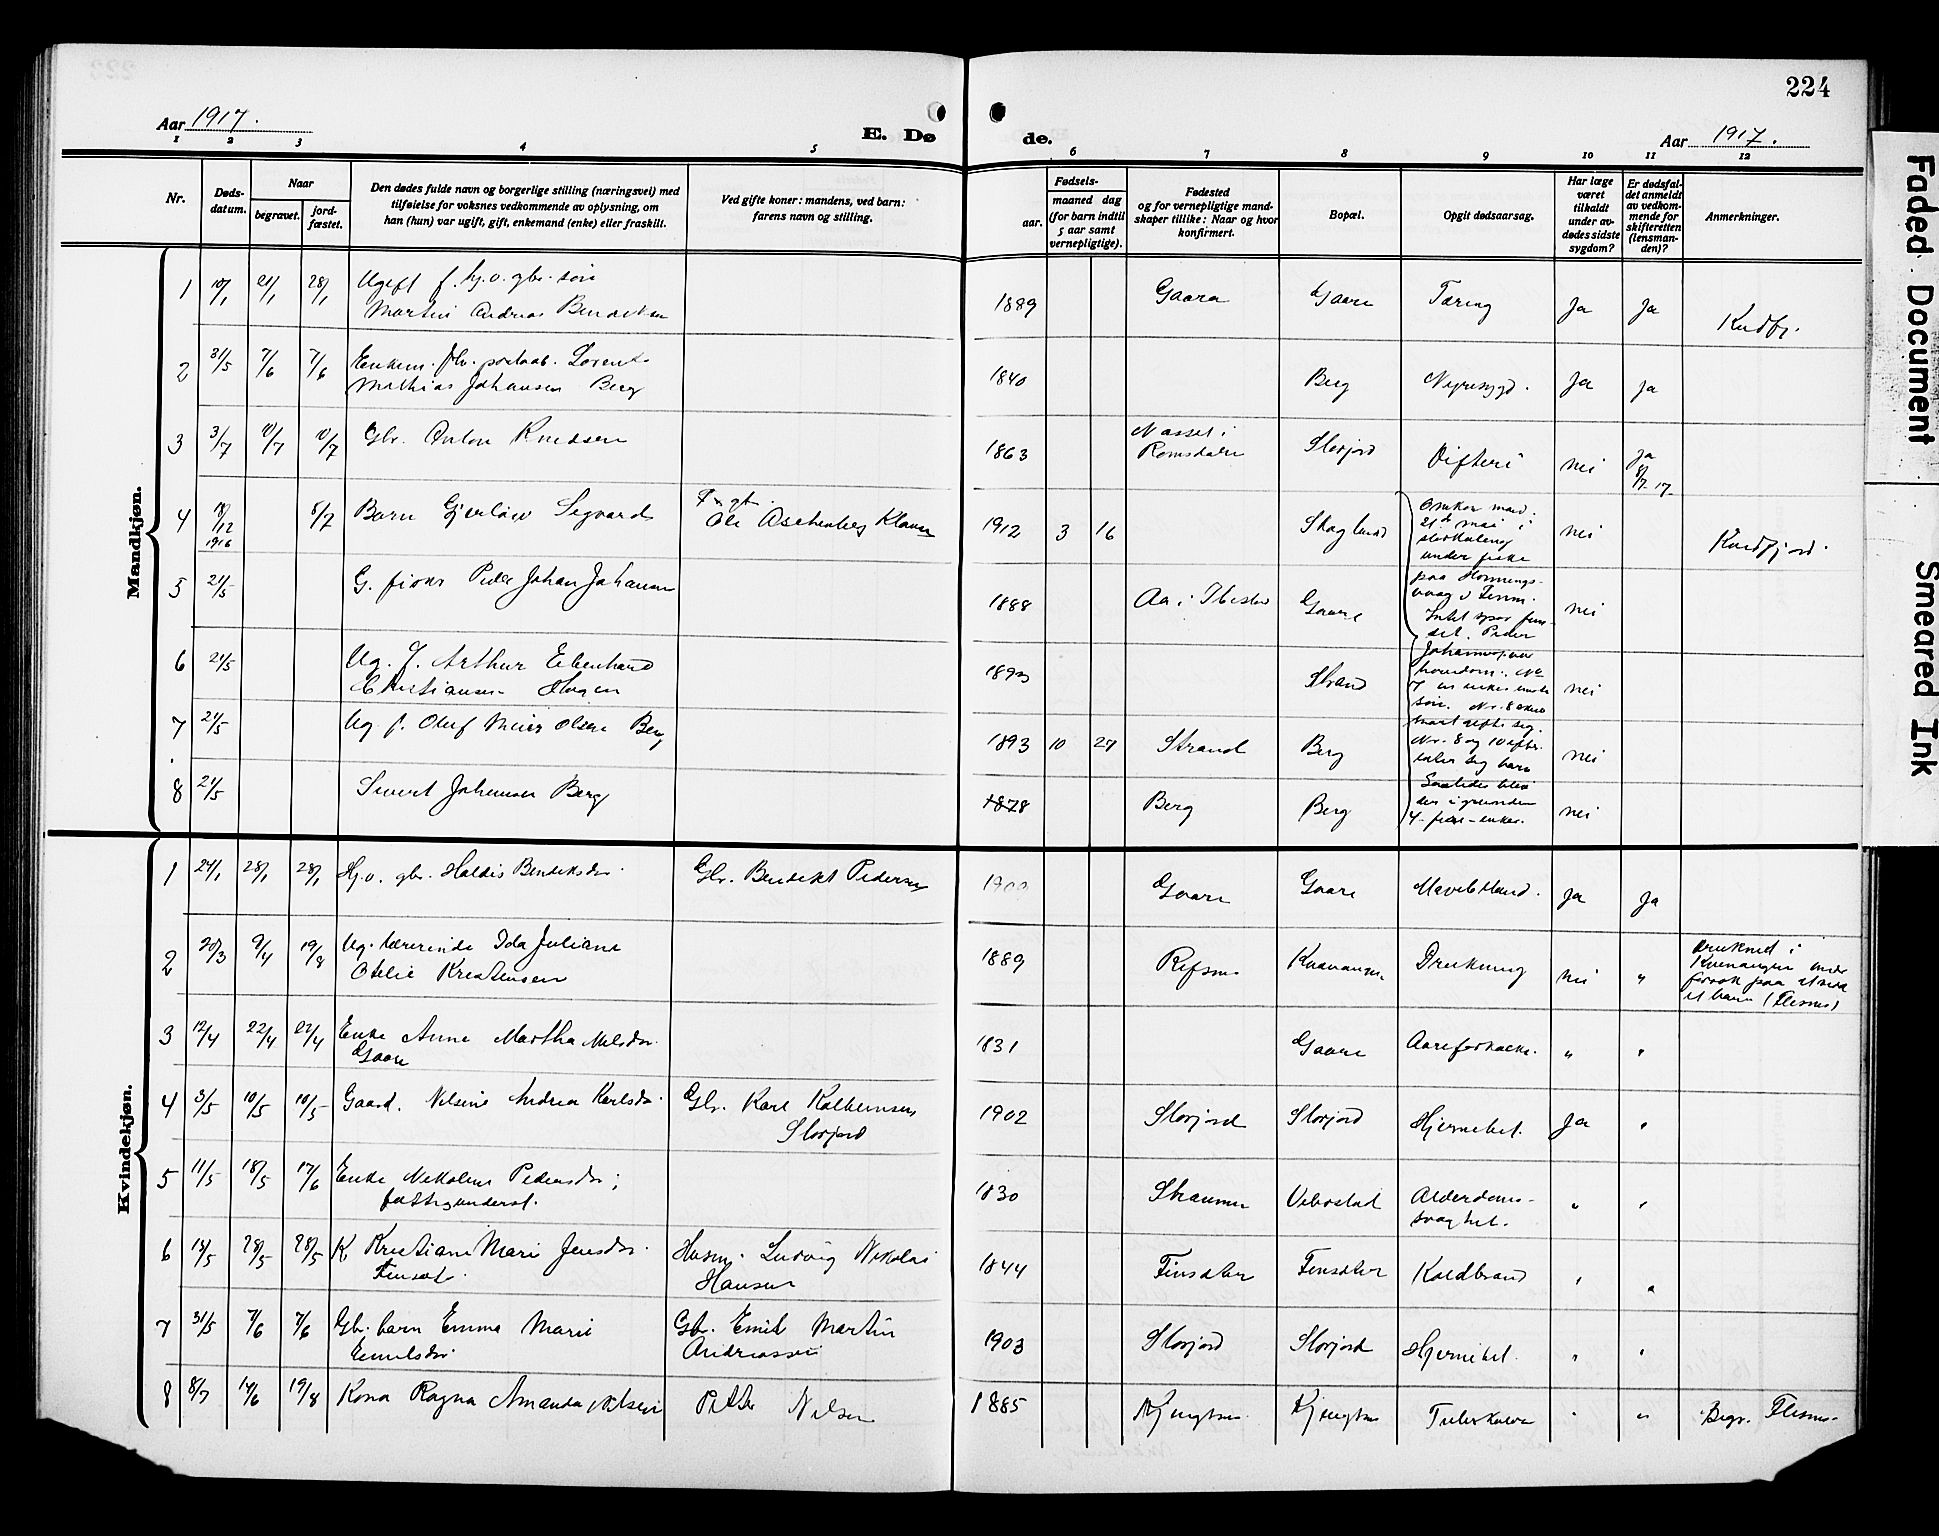 224
Aar 1917.
E. Døde.
Aar 1917.
1 2 3 4 5 6 7 8 9 10 11 12
Nr.
Døds-
datum.
Naar
begravet.
jord-
fæstet.
Den dødes fulde navn og borgerlige stilling (næringsvei) med
tilføielse for voksnes vedkommende av oplysning, om
han (hun) var ugift, gift, enkemand (enke) eller fraskilt.
Ved gifte koner: mandens, ved barn:
farens navn og stilling.
Fødsels-
aar.
maaned dag
(for barn indtil
5 aar samt
vernepligtige).
Fødested
og for vernepligtige mand-
skaper tillike: Naar og hvor
konfirmert.
Bopæl.
Opgit dødsaarsag.
Har læge
været
tilkaldt
under av-
dødes sidste
sygdom?
Er dødsfal-
det anmeldt
av vedkom-
mende for
skifteretten
(lensman-
den)?
Anmerkninger.
Mandkjøn.
1 10/1 28/1 Ugift f. hj.o. gbr. søn
Martin Andreas 1889 Gaara Gaare Tæring Ja Ja
2 31/5 7/6 7/6 Enkem. fhv. Lorents
Mathias Johansen Berg 1840 Berg Nyresygd. Ja Ja
3 3/7 10/7 10/7 Gbr. Anton Knudsen 1863 Næsset i
Romsdalen Storjord Difteri nei Ja
8/7 17
4 18/12
1916 8/7 Barn Sigvard Ole Aschenberg 1912 3 16 Skoglund nei
5 21/5 G. fisker Peder Johan Johansen 1888 Aa i Ibestad Gaare nei
6 21/5 Ug. f. Arthur Edenhard
Christiansen Hagen 1893 Strand nei
7 21/5 Ug. f. Oluf Meier Olsen Berg 1893 10 27 Strand Berg nei
8 21/5 Sivert Johansen Berg 1878 Berg Berg nei
21de mai i
under
paa Honnings-
vaag i Finm.
Intet spor fun-
det. Peder
Nr. 8 og 10 efter-
later sig barn
Saaledes blev
der i grunden
4 enker.
Kvindekjøn.
1 24/1 28/1 28/1 Hj.o. gbr. Haldis Bendiksdr. Gbr. Bendikt Pedersen 1900 Gaare Gaare Ja Ja
2 20/3 9/4 19/8 Ug. lærerinde Ida Juliane
Otelie Kristensen 1889 Refsnes Drukning nei "
druknet i
Kvenangen under
forsøk paa at redde
et barn (Flesnes)
3 12/4 22/4 22/4 Enke Anne Martha Nilsdr.
Gaare 1831 Gaare Aareforkalkn. " "
4 3/5 10/5 10/5 Gaard. Nilsine Andrea Karlsdr. Gbr. Karl
Storjord 1902 Storjord Storjord Hjernebet. Ja "
5 11/5 18/5 17/6 Enke Nikoline Pedersdr;
fattigunderst. 1830 Vibostad Alderdoms-
svaghet. " "
6 18/5 28/5 28/5 K Kristiane Marie Jensdr.
Finsæt. Husm. Ludvig Nikolai
Hansen 1844 Finsæter Finsæter Koldbrand " "
7 31/5 7/6 7/6 Gbr. barn Emma Marie
Emilsdr. Gbr. Emil Martin
Andreassen 1903 Storjord Storjord Hjernebet. " "
8 8/7 14/6 19/8 Kona Ragna Amanda Nilsen Petter Nilsen 1885 " " Begr. Flesnes.
Faded Document
Smeared Ink